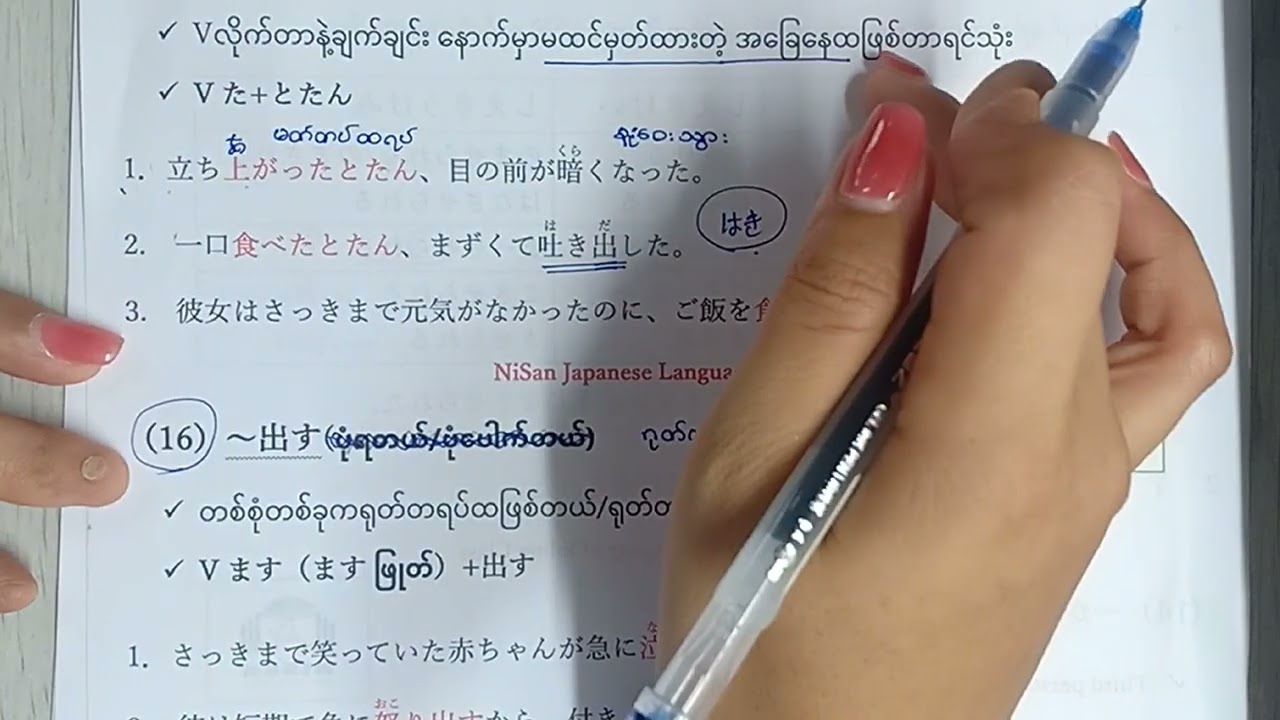 ✓ Vလိုက်တာနဲ့ချက်ချင်း နောက်မှာမထင်မှတ်ထားတဲ့ အခြေနေထဖြစ်တာရင်သုံး
✓ V た+とたん
あ မတ်တပ်ထရပ်
くら
1. 立ち上がったとたん、目の前が暗くなった。
は だ
2. 一口食べたとたん、まずくて吐き出した。 はき
3. 彼女はさっきまで元気がなかったのに、ご飯を食
NiSan Japanese Langua
(16) ～出す
✓ တစ်စုံတစ်ခုကရုတ်တရပ်ထဖြစ်တယ်/ရုတ်တ
✓ V ます（ます ဖြုတ်）+出す
な
1. さっきまで笑っていた赤ちゃんが急に泣
おこ